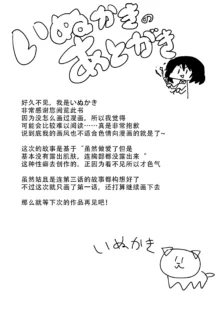 いぬかきの
あとがき
好久不见，我是いぬかき
非常感谢您阅览此书
因为没怎么画过漫画，所以我觉得
可能会比较难以阅读……真是非常抱歉
说到底我的画风也不适合色情向漫画的就是了~
这次的故事是基于“虽然做爱了但是
基本没有露出肌肤，连胸部都没露出来”
这种性癖去创作的，正因为看不见所以才色气
虽然姑且是连第三话的故事都构想好了
不过这次就只画了第一话，还打算继续画下去
那么就等下次的作品再见吧！
いぬかき